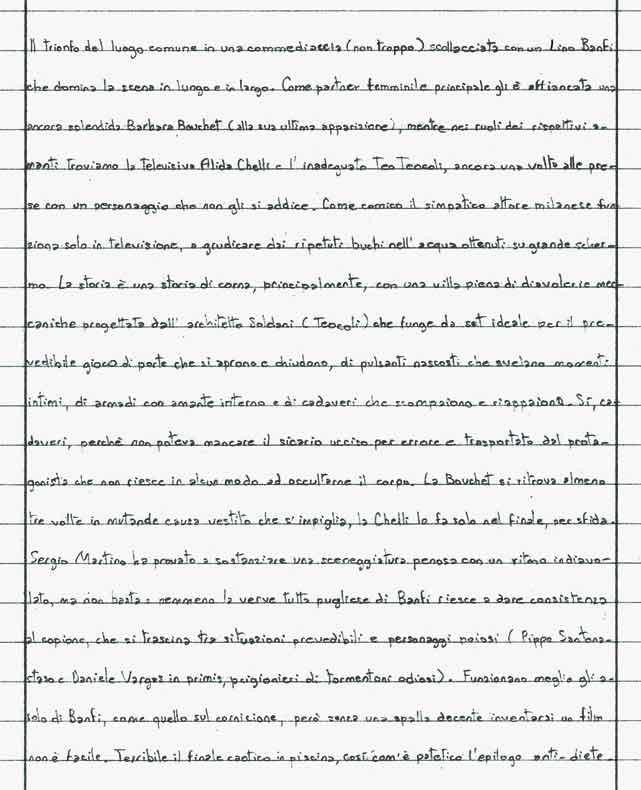 Il trionfo del luogo comune in una commediaccia (non troppo) scollacciata con un Lino Banfi
che domina la scena in lungo e in largo. Come partner femminile principale gli è affiancata una
ancora splendida Barbara Bouchet (alla sua ultima apparizione), mentre nei ruoli dei rispettivi a-
manti troviamo la televisiva Alida Chelli e l'inadeguato Teo Teocoli, ancora una volta alle pre-
se con un personaggio che non gli si addice. Come comico il simpatico attore milanese fun
ziona solo in televisione, a giudicare dai ripetuti buchi nell'acqua ottenuti su grande scher-
mo. La storia è una storia di corna, principalmente, con una villa piena di diavolerie mec-
caniche progettata dall'architetto Soldani (Teocoli) che funge da set ideale per il pre-
vedibile gioco di porte che si aprono e chiudono, di pulsanti nascosti che svelano momenti
intimi, di armadi con amante interno e di cadaveri che scompaiono e riappaiono. Sì, ca-
daveri, perchè non poteva mancare il sicario ucciso per errore e trasportato dal prota-
gonista che non riesce in alcun modo ad occultarne il corpo. La Bouchet si ritrova almeno
tre volte in mutande causa vestito che s'impiglia, la Chelli lo fa solo nel finale, per sfida.
Sergio Martino ha provato a sostanziare una sceneggiatura penosa con un ritmo indiavo-
lato, ma non basta: nemmeno la verve tutta pugliese di Banfi riesce a dare consistenza
al copione, che si trascina tra situazioni prevedibili e personaggi noiosi (Pippo Santona-
staso e Daniele Vargas in primis, prigionieri di tormentoni odiosi). Funzionano meglio gli a-
solo di Banfi, come quello sul cornicione, però senza una spalla decente inventarsi un film
non è facile. Terribile il finale caotico in piscina, così com'è patetico l'epilogo anti-diete-